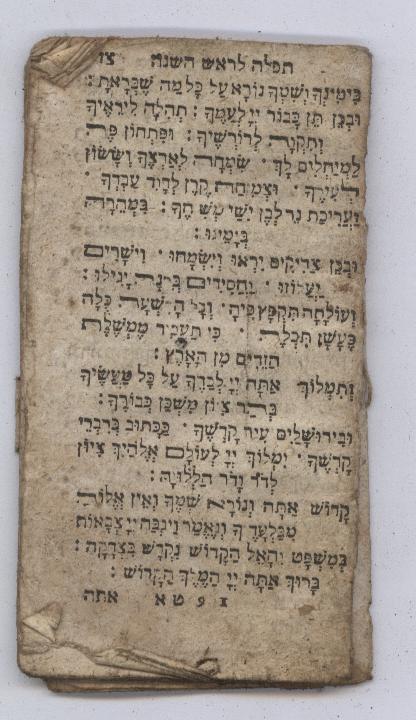 תפלה לראש השנה צו
בִּימִינְךָ וְשִׁמְךָ נוֹרָא עַל כָּל מַה שֶׁבָּרָאתָ :
וּבְכֵן תֵּן כָּבוֹד יְיָ לְעַמֶּךָ : תְּהִלָּה לִירֵאֶיךָ
וְתִקְוָה לְדוֹרְשֶׁיךָ : וּפִתְחוֹן פֶּה
לַמְיַחֲלִים לָךְ · שִׂמְחָה לְאַרְצֶךָ וְשָׂשׂוֹן
לְעִירֶךָ · וּצְמִיחַת קֶרֶן לְדָוִד עַבְדֶּךָ ·
וַעֲרִיכַת נֵר לְבֶן יִשַׁי מְשִׁחֶךָ : בִּמְהֵרָה
בְיָמֵינוּ :
וּבְכֵן צַדִּיקִים יִרְאוּ וְיִשְׂמָחוּ · וִישָׁרִים
יַעֲלוֹזוּ · וַחֲסִידִים בְּרִנָּה יָגִילוּ :
וְעוֹלָתָה תִּקְפָּץ פִּיהָ · וְכָל הָרִשְׁעָה כֻּלָּהּ
כֶּעָשָׁן תִּכְלֶה · כִּי תַעֲבִיר מֶמְשֶׁלֶת
הַזֵּדִים מִן הָאָרֶץ :
וְתִמְלוֹךְ אַתָּה יְיָ לְבַדֶּךָ עַל כָּל מַעֲשֶׂיךָ
בְּהַר צִיּוֹן מִשְׁכַּן כְּבוֹדֶךָ :
וּבִירוּשָׁלַיִם עִיר קָדְשֶׁךָ · כַּכָּתוּב בְּדִבְרֵי
קָדְשֶׁךָ · יִמְלוֹךְ יְיָ לְעוֹלָם אֱלֹהַיִךְ צִיּוֹן
לְדֹר וָדֹר הַלְלוּיָהּ :
קָדוֹשׁ אַתָּה וְנוֹרָא שְׁמֶךָ וְאֵין אֱלוֹהַּ
מִבַּלְעָדֶיךָ וְנֶאֱמַר וַיִּגְבַּהּ יְיָ צְבָאוֹת
בַּמִּשְׁפָּט וְהָאֵל הַקָּדוֹשׁ נִקְדַּשׁ בִּצְדָקָה :
בָּרוּךְ אַתָּה יְיָ הַמֶּלֶךְ הַקָּדוֹשׁ :
אתה